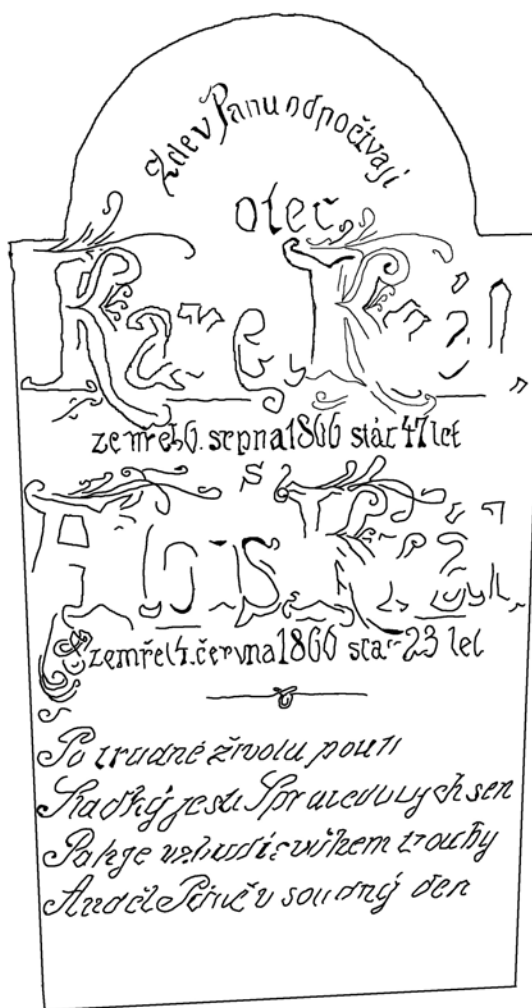 Zde v Panu odpočívají
otec
Karel Král,
zemřel 6. srpna 1866 stár 47 let
s
Alois Král,
zemřel 4. června 1860 stár 23 let
Po trudné života pouti
Sladký jest Spravedlivých sen
Pak je vzbudí zvukem trouby
Anděl Páně v soudný den